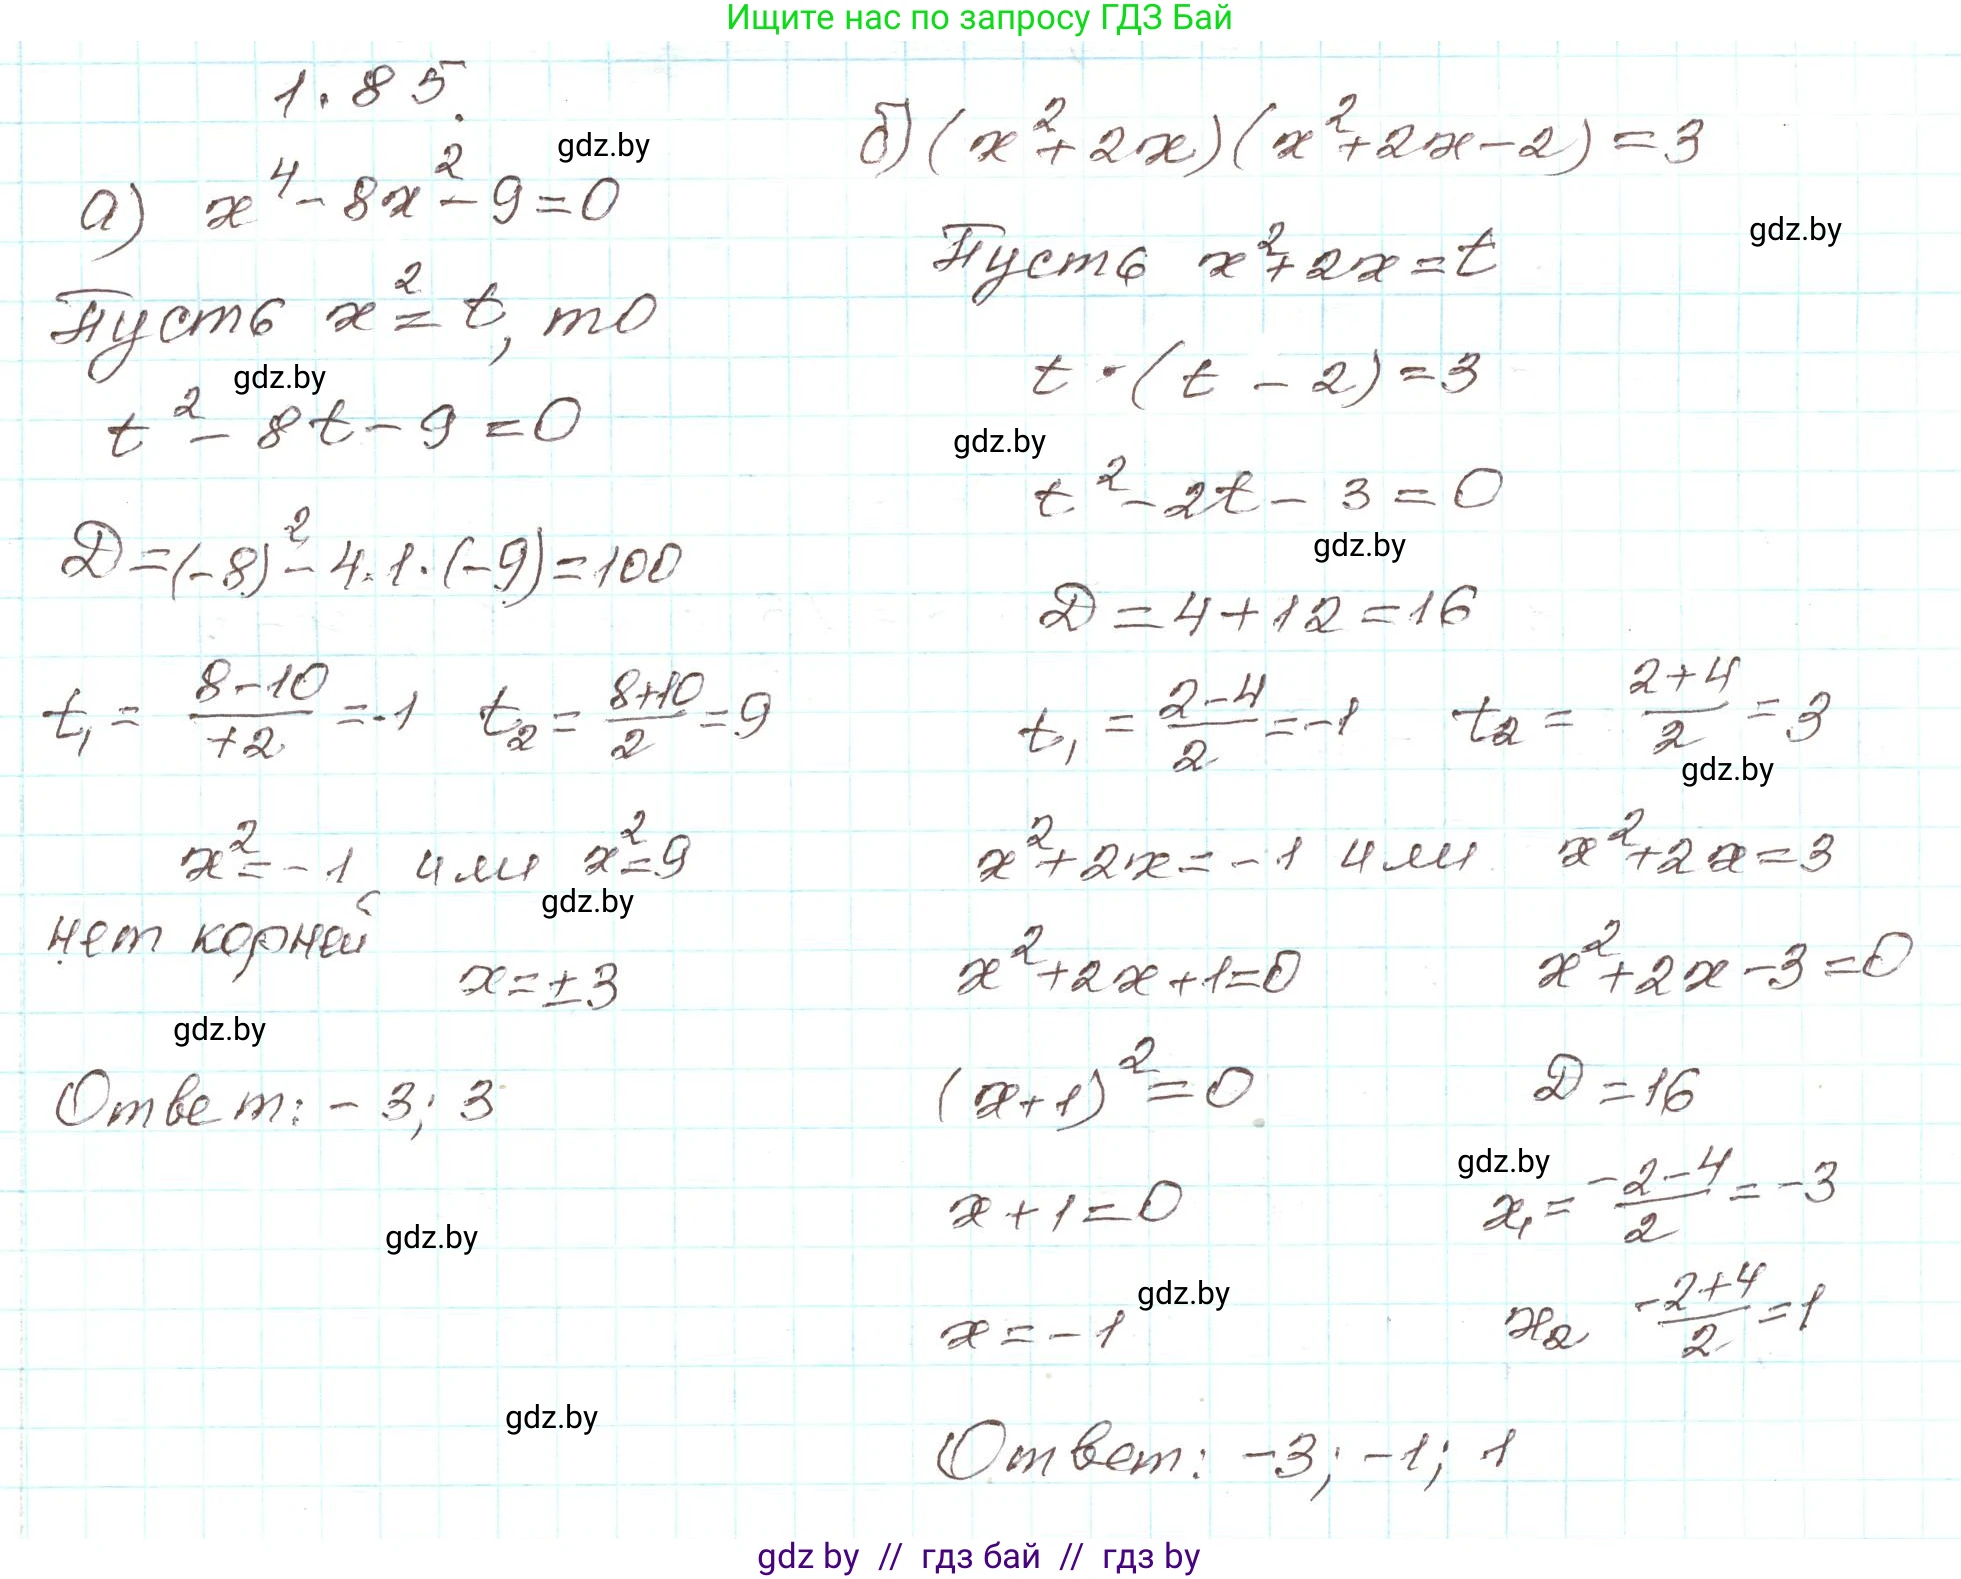 Ищите нас по запросу ГДЗ Бай
1.85.
gdz.by
а) x⁴ - 8x² - 9 = 0
Пусть x² = t, то
gdz.by
t² - 8t - 9 = 0
D = (-8)² - 4·1·(-9) = 100
t₁ = (8-10)/+2 = -1 t₂ = (8+10)/2 = 9
x² = -1 или x² = 9
gdz.by
нет корней
x = ±3
gdz.by
Ответ: -3; 3
gdz.by
gdz.by
б) (x² + 2x)(x² + 2x - 2) = 3
gdz.by
Пусть x² + 2x = t
t · (t - 2) = 3
gdz.by
t² - 2t - 3 = 0
gdz.by
D = 4 + 12 = 16
t₁ = (2-4)/2 = -1 t₂ = (2+4)/2 = 3
gdz.by
x² + 2x = -1 или x² + 2x = 3
x² + 2x + 1 = 0 x² + 2x - 3 = 0
(x+1)² = 0 D = 16
gdz.by
x + 1 = 0 x₁ = (-2-4)/2 = -3
gdz.by
x = -1 x₂ (-2+4)/2 = 1
Ответ: -3; -1; 1
gdz by // гдз бай // гдз by